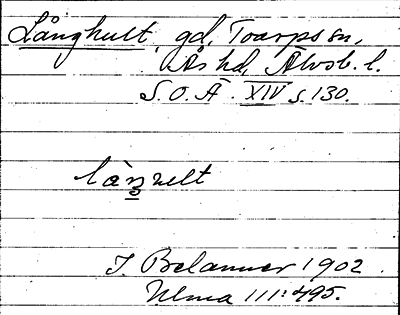 Långhult, gd, Toarps sn,
Ås hd, Älvsb. l.
S.O.Ä. XIV s. 130.
làŋult
J. Belanner 1902.
Ulma 111:495.